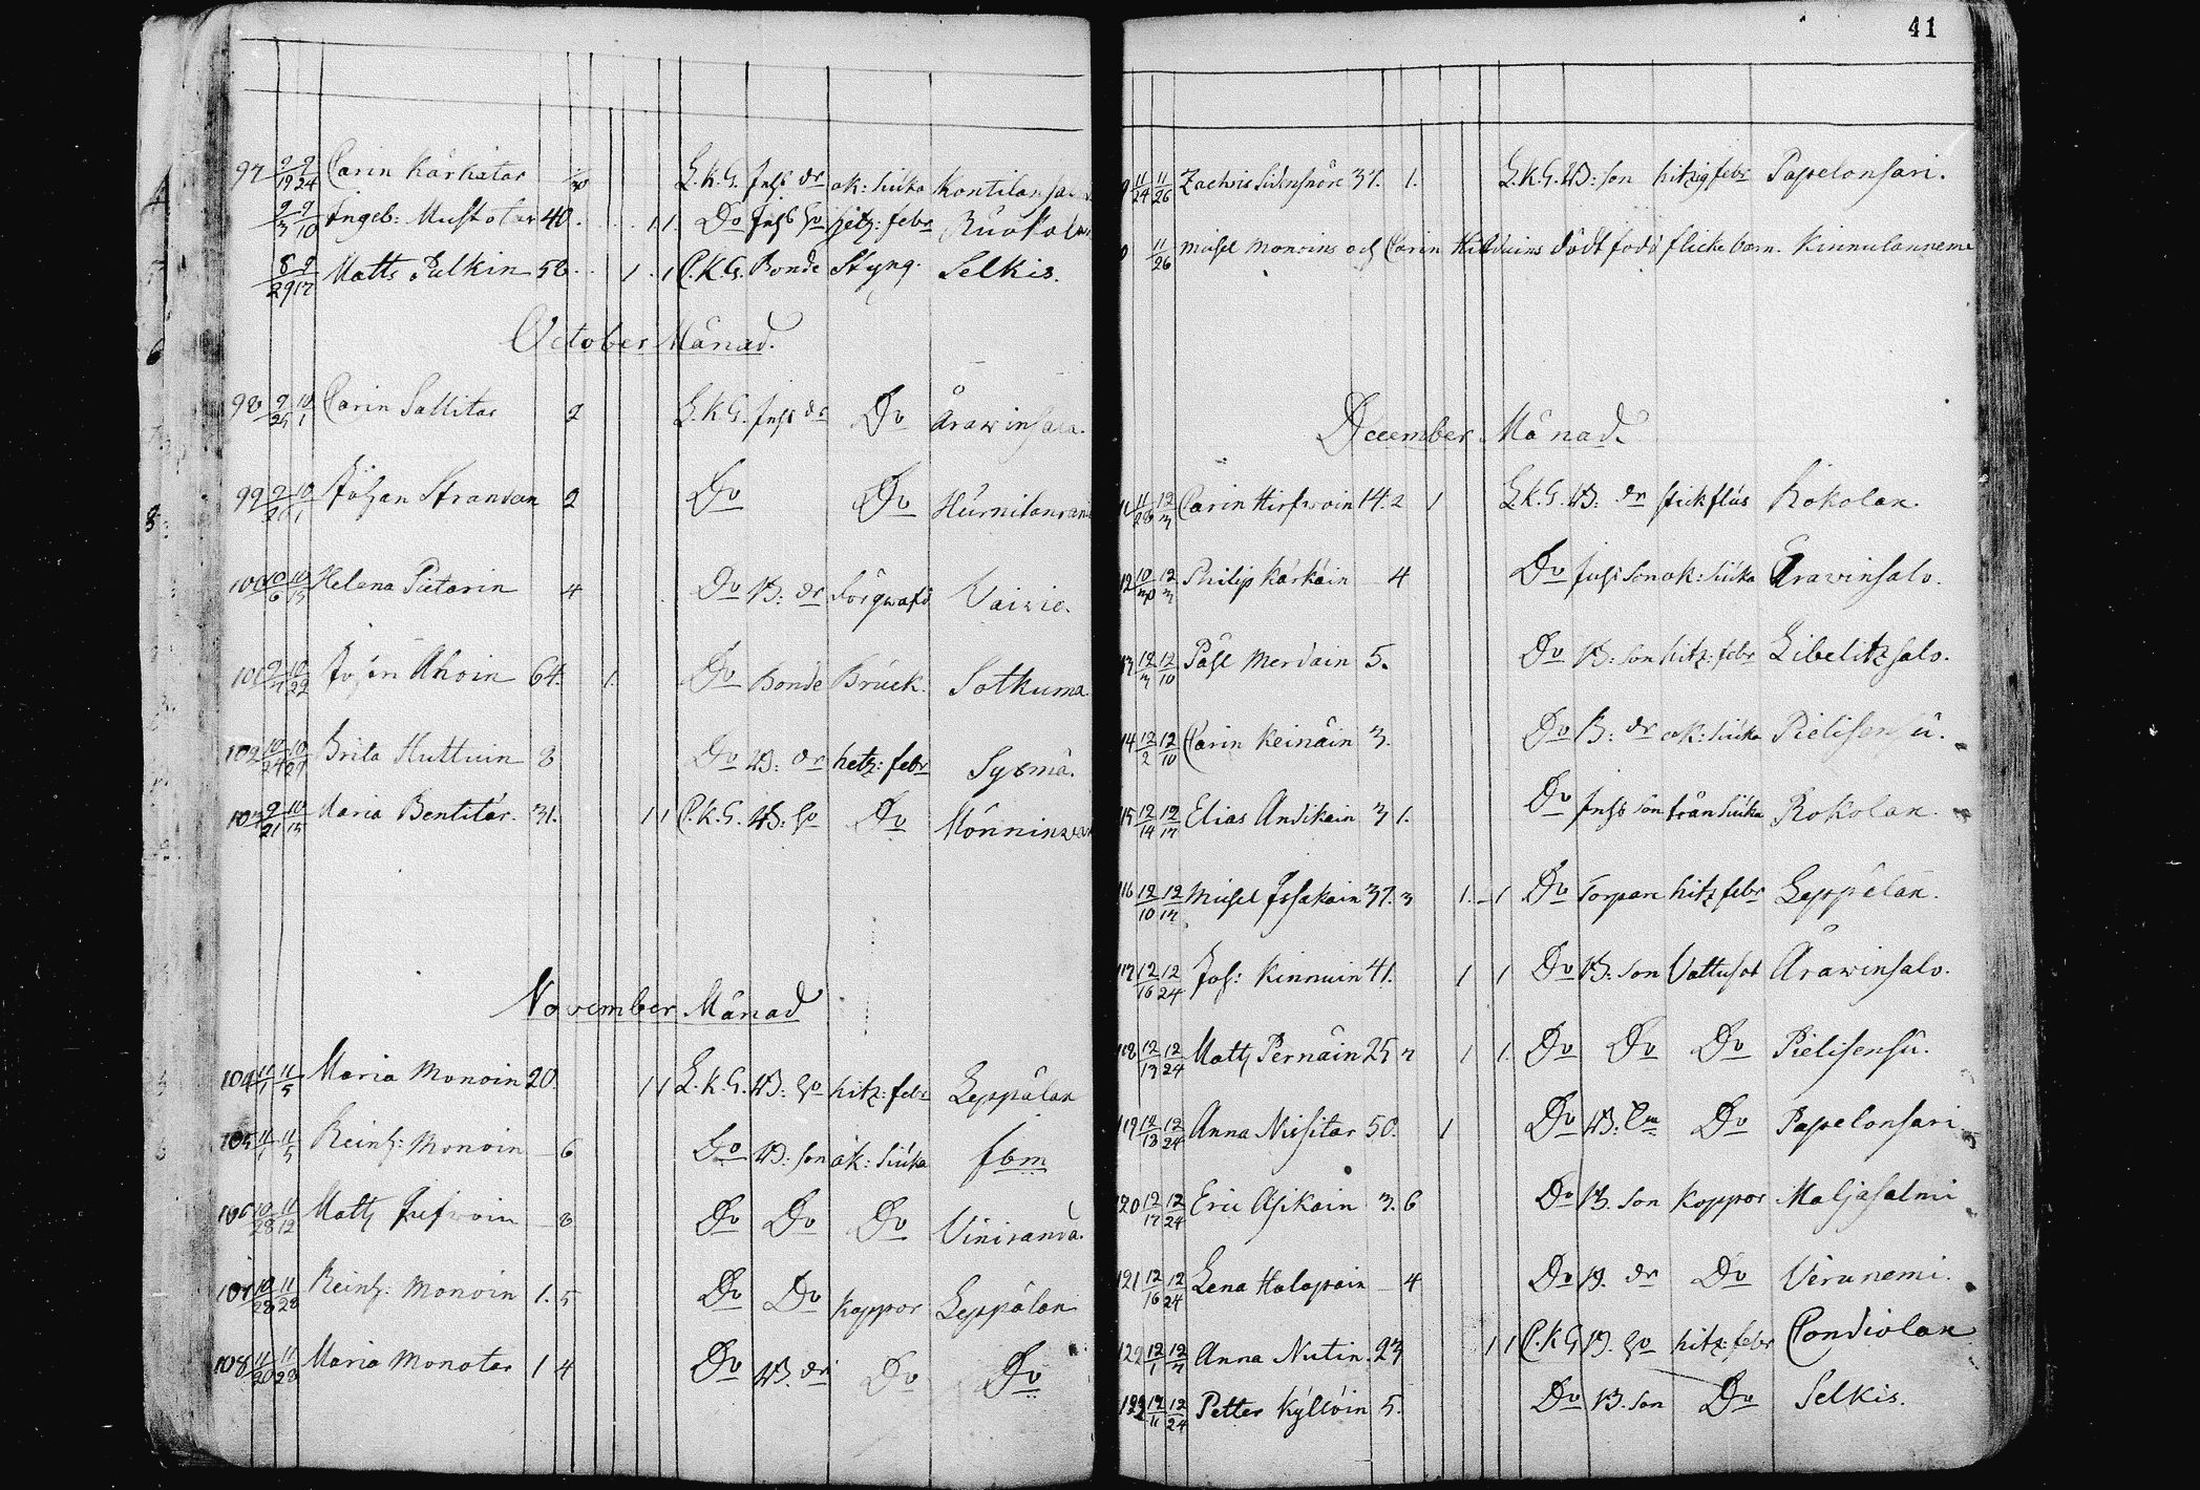 41
97 9/19 9/24 Carin Kärkätar L.K.G. Inhs dr ok: siuka Kontilansa
9/3 9/10 Ingeb: Mustotar 40. 1 1. Do Inhs ho hetz: febr Ruokola
8/29 9/17 Matts Pulkin 56. 1 1 C.K.G. Bonde Styng. Selkis.
October Månad.
98 9/25 10/1 Carin Sallitar 2 L.K.G. Inhs dr Do Arawinsala.
99 9/21 10/1 Johan Stranden 2 Do Do Hurnitanran
100 10/6 10/15 Helena Pietarin 4 Do B: dr Torgwärk Vaivio.
101 10/22 Johan Ahoin 64. 1. Do Bonde Bråck. Sotkuma
102 10/24 10/29 Brita Huttuin 8 Do B: dr hetz: febr Sysmä.
103 9/21 10/15 Maria Bentitär. 31. 1 1 C.K.G. B: ho Do Mönninwa
November Månad
104 11/1 11/5 Maria Monoin 20. 1 1 L.K.G. B: ho hitz: febr Leppälax
105 11/1 11/5 Reinh: Monoin 6 Do B: son ok: siuka fbm
106 10/28 11/12 Matts 8 Do Do Do Viniranda.
107 10/28 11/28 Reinh: Monoin 1. 5 Do Do koppor Leppälax
108 11/20 11/28 Maria Monotar 1 4 Do B. dr Do Do
9 11/24 11/26 Zachris 37. 1. L.K.G. B: son hitzig febr Papelonsari.
0 11/26 Michel Monoins och Carin Hildiuins dödt födt flicke barn. Kinnulanneme
December Månad.
11 11/28 12/3 Carin Hirfwoin 14. 2 1 L.K.G. B: dr stickflus Rokolax.
12 10/30 12/3 Philip Kärkäin 4 Do Inhs son ok: siuka Arawinsalo.
13 12/3 12/10 Påhl Merdäin 5. Do B: son hitz: febr Libelitzsalo.
14 12/2 12/10 Carin Keinäin 3. Do B: dr ok: siuka Pielisensu.
15 12/14 12/17 Elias Andikain 3 1. Do Inhs son trånsiuka Rokolax.
116 12/10 12/17 Michel Issakain 37. 3 1. 1 Do Torpare hitz febr Leppälax.
117 12/16 12/24 Joh: Kinnuin 41. 1 1 Do B: son Vattusot Arawinsalo.
118 12/13 12/24 Matts Pernäin 25 7 1 1. Do Do Do Pielisensu.
119 12/13 12/24 Anna Nissitar 50. 1 Do B: Do Papelonsari
120 12/17 12/24 Eric Asikain 3. 6 Do B. son Koppor Maljasalmi
121 12/16 12/24 Lena Halapain 4 Do B. dr Do Virunemi.
122 12/1 12/7 Anna Nutin. 27 1 1 C.K.G B. ho hitz: febr Condiolax
122 12/11 12/24 Petter Kyllöin 5. Do B. son Do Selkis.